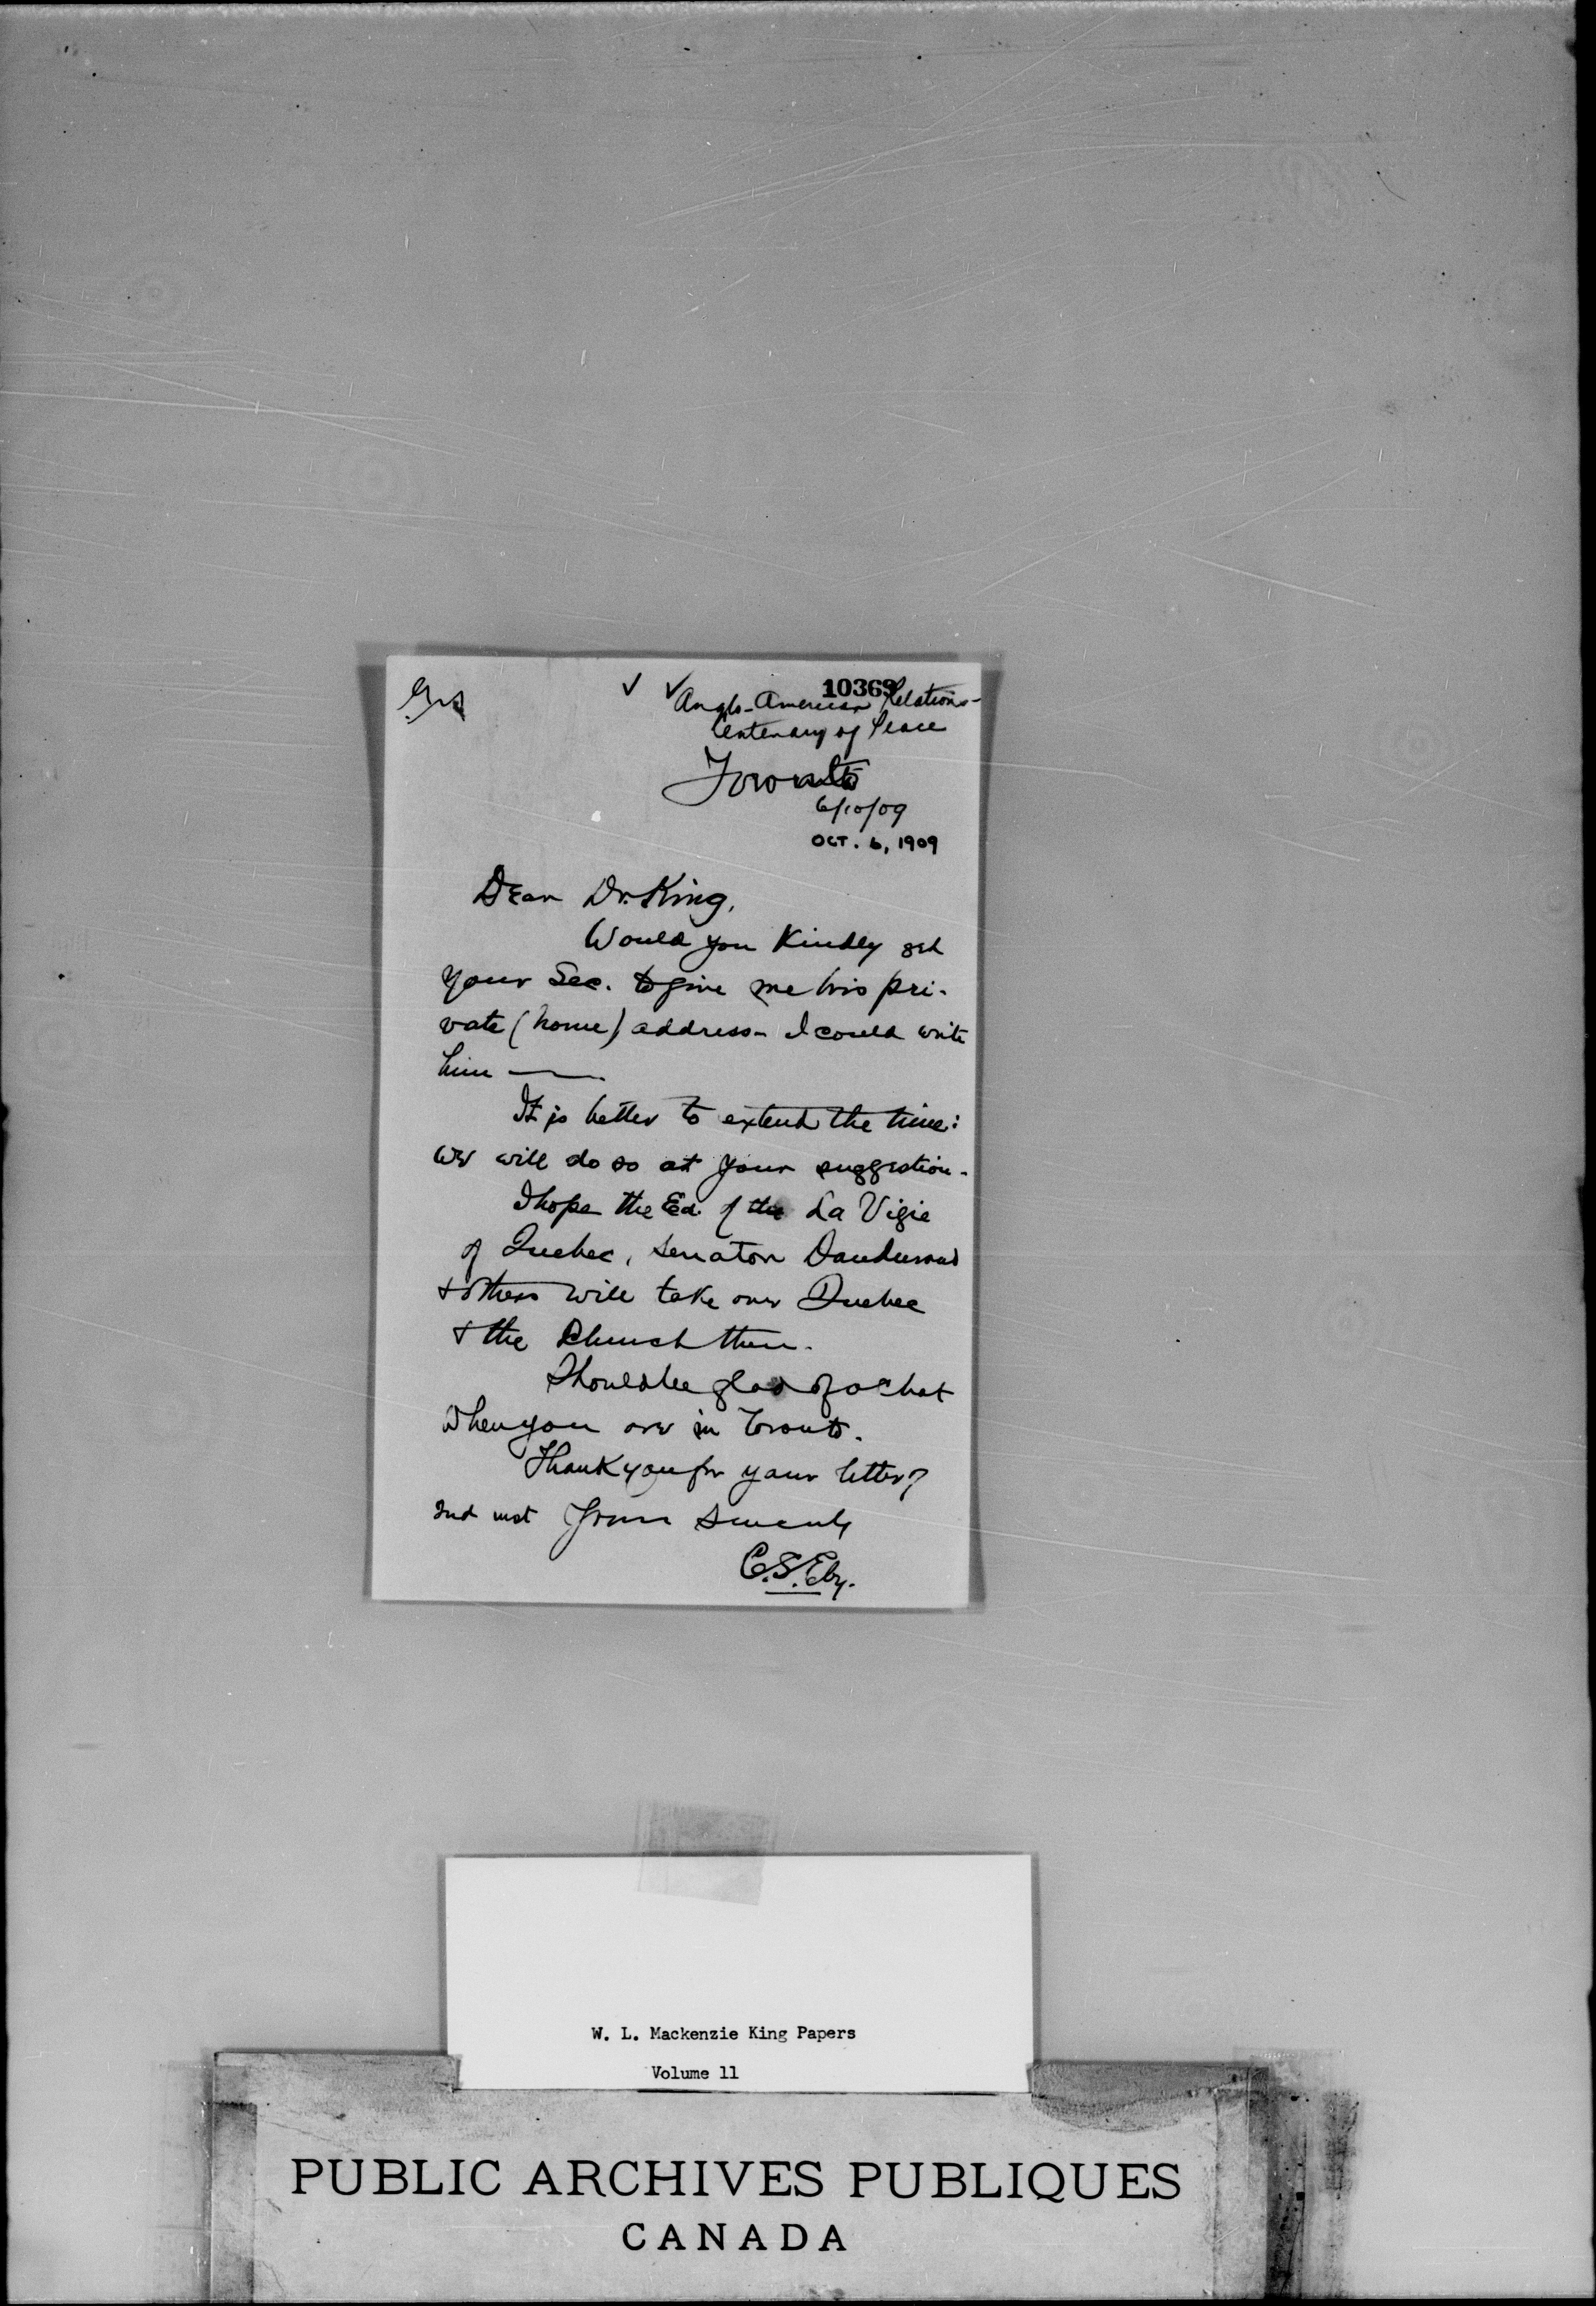 10369
Anglo-American Relations-
Centenary of Peace
Toronto
6/10/09
OCT. 6, 1909
Dear Dr. King,
Would you Kindly get
your Sec. to give me his pri-
vate (home) address - I could write
him —
It is better to extend the time:
we will do so at your suggestion.
I hope the Ed. of the La Vigie
of Quebec, Senator Dandurand
& others will take over Quebec
& the Church then.
Should be glad of a chat
when you are in Toronto.
Thank you for your letter,
Yours sincerely
C.S. Eby.
W. L. Mackenzie King Papers
Volume 11
PUBLIC ARCHIVES PUBLIQUES
CANADA